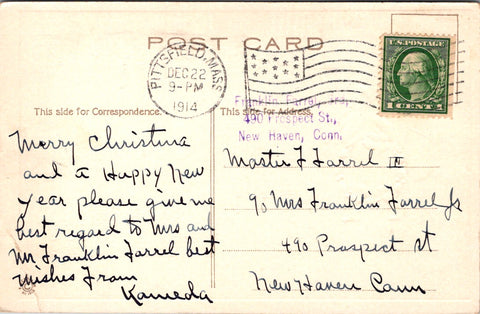 POST CARD
PITTSFIELD, MASS.
DEC 22
9-PM
1914
U.S. POSTAGE
1 CENT 1
This side for Correspondence.
This side for Address.
Franklin Farrel, Jr.,
490 Prospect St.,
New Haven, Conn.
Merry Christma
and a Happy New
Year please give me
best regard to Mrs and
Mr Franklin Farrel best
wishes From
Kameda
Master F Farrel III
c/o Mrs Franklin Farrel Jr
490 Prospect st
New Haven Conn